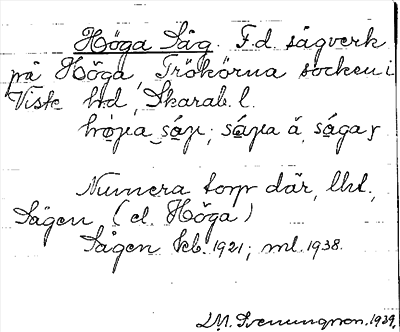 Höga Såg. F.d. sågverk
på Höga, Trökörna socken i
Viste hd, Skarab. l.
Numera torp där, lht.,
Sågen (el. Höga)
Sågen kb. 1921; ml. 1938.
L.M. Svenungsson. 1939.